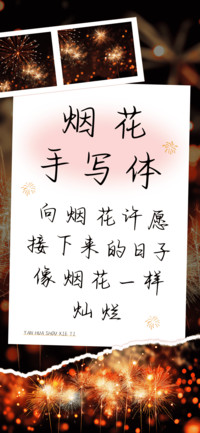 烟花
手写体
向烟花许愿
接下来的日子
像烟花一样
灿烂
YAN HUA SHOU XIE TI